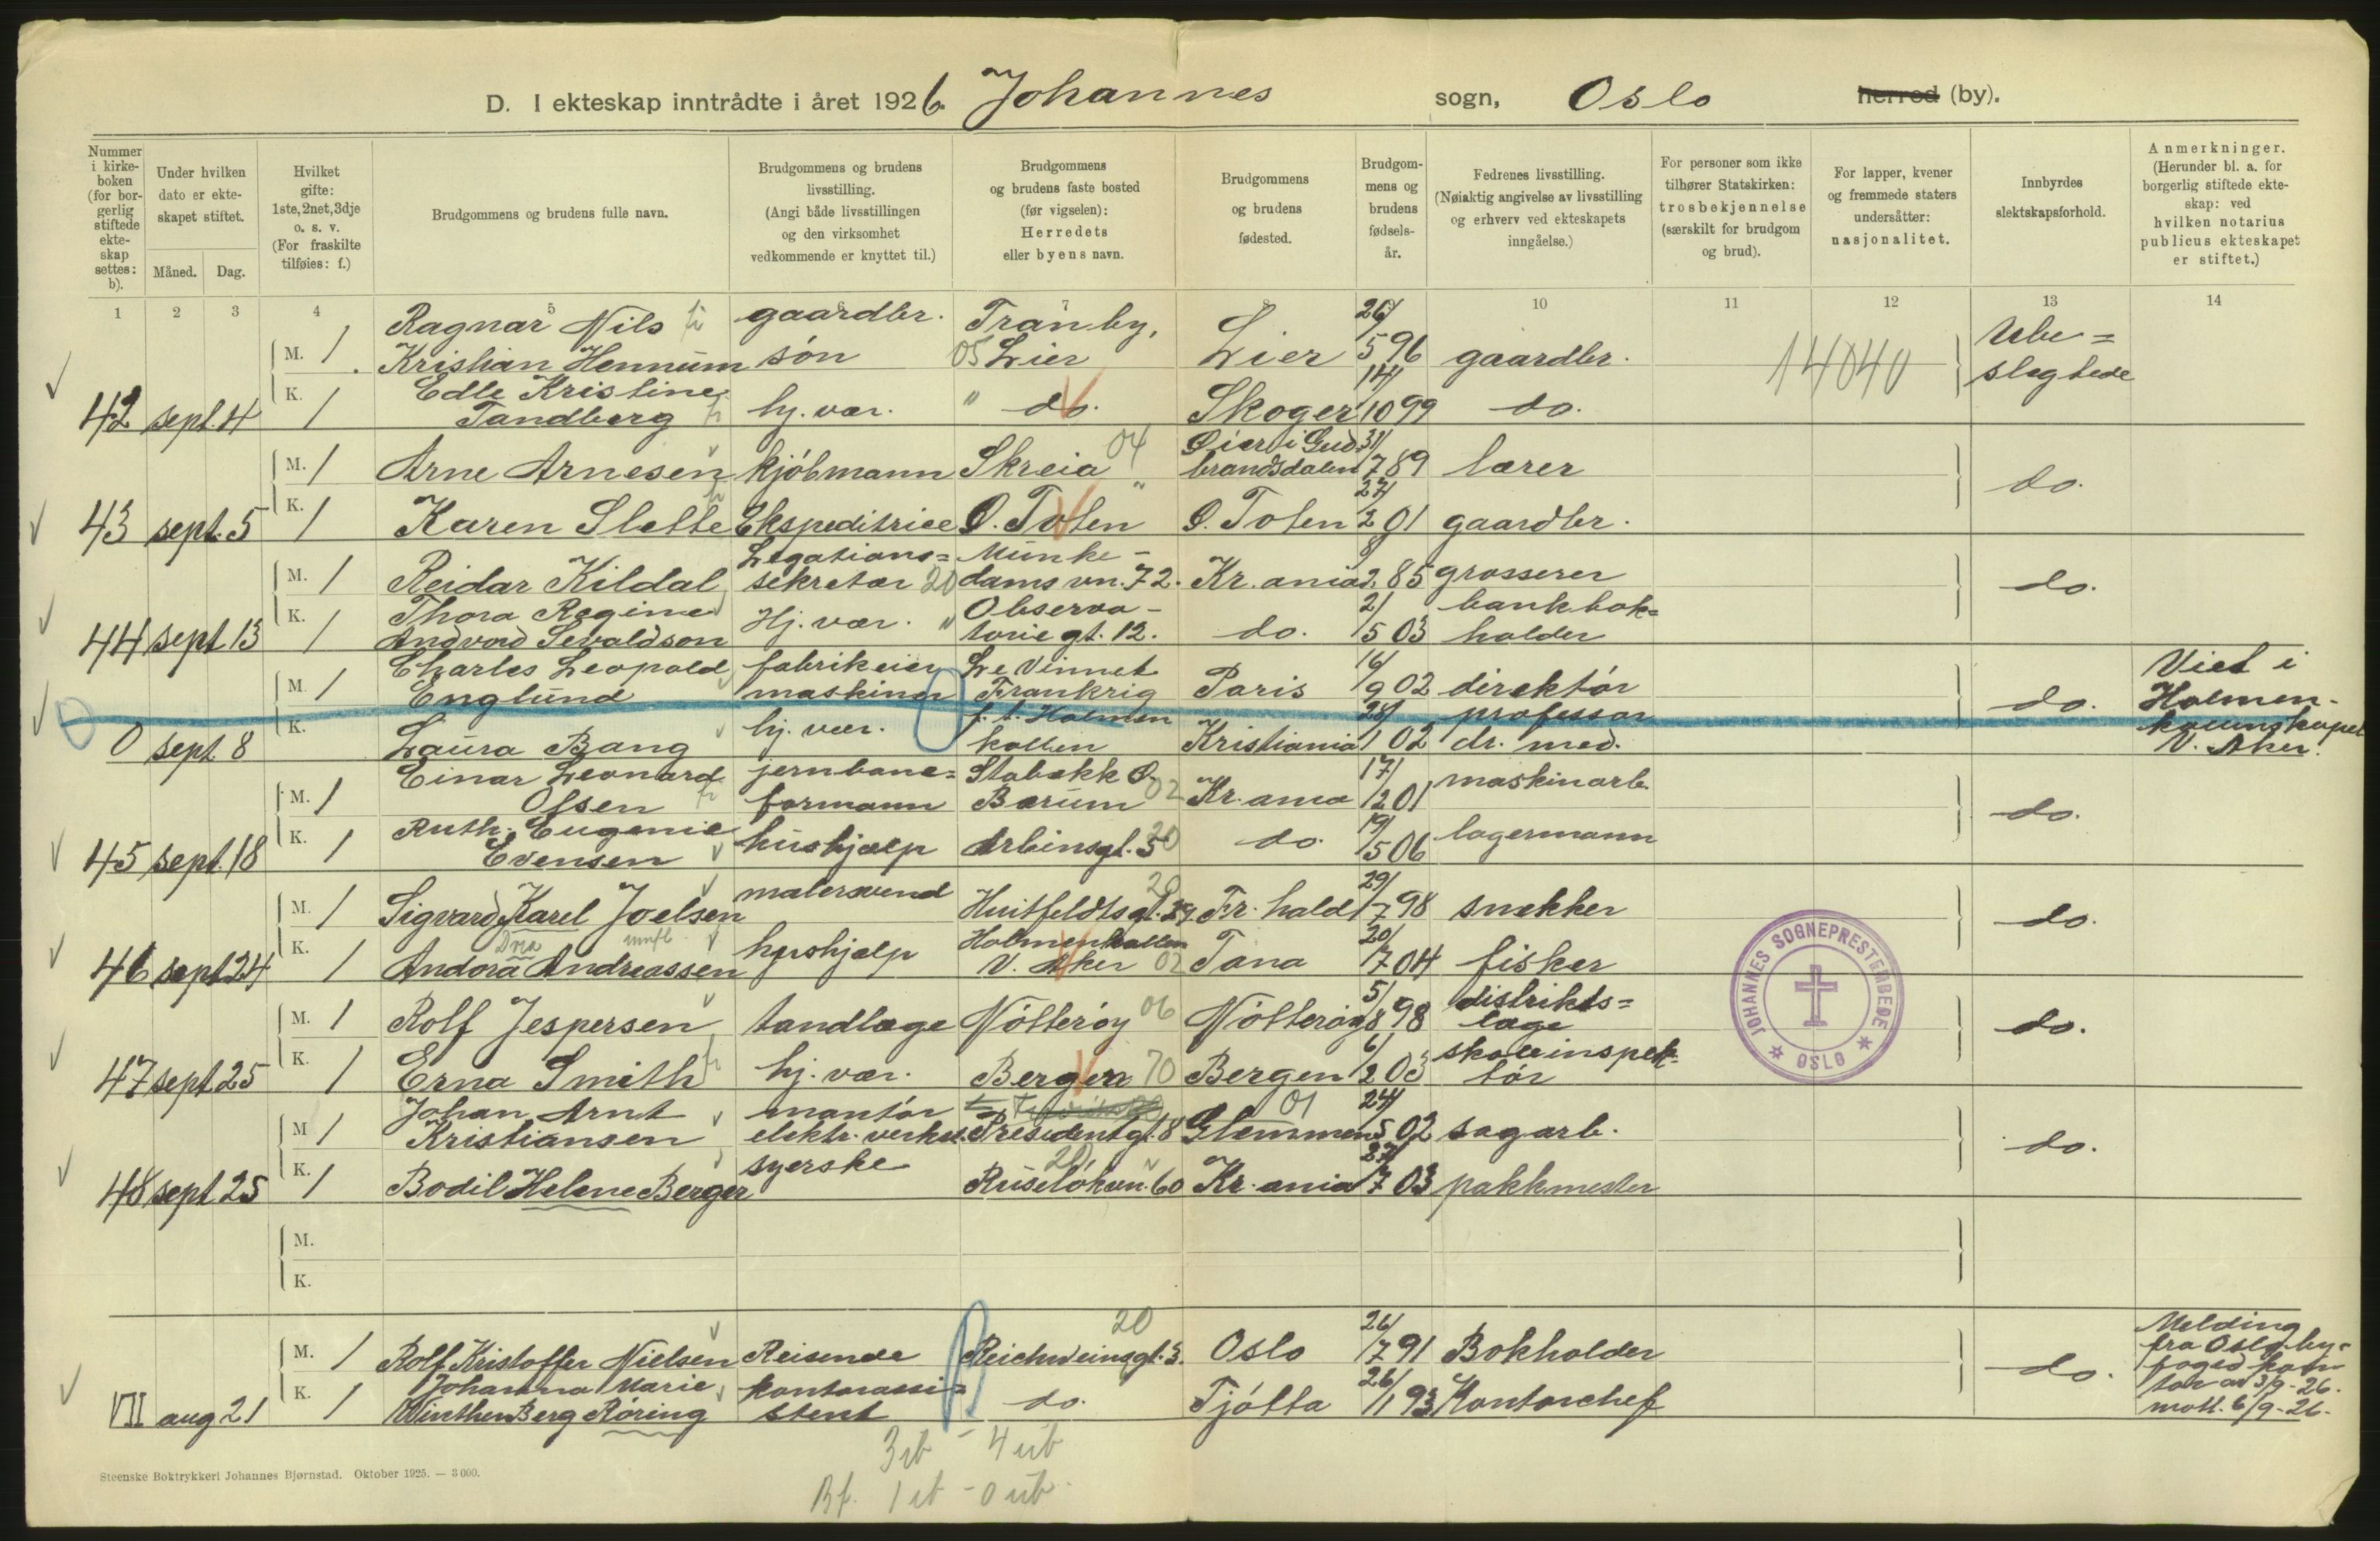 D. I ekteskap inntrådte i året 1926. Johannes sogn, Oslo herred (by).
Nummer i kirkeboken (for borgerlig stiftede ekteskap settes: b).
Under hvilken dato er ekteskapet stiftet.
Måned. Dag.
Hvilket gifte: 1ste, 2net, 3dje o. s. v. (For fraskilte tilføies: f.)
Brudgommens og brudens fulle navn.
Brudgommens og brudens livsstilling. (Angi både livsstillingen og den virksomhet vedkommende er knyttet til.)
Brudgommens og brudens faste bosted (før vigselen): Herredets eller byens navn.
Brudgommens og brudens fødested.
Brudgommens og brudens fødselsår.
Fedrenes livsstilling. (Nøiaktig angivelse av livsstilling og erhverv ved ekteskapets inngåelse.)
For personer som ikke tilhører Statskirken: trosbekjennelse (særskilt for brudgom og brud).
For lapper, kvener og fremmede staters undersåtter: nasjonalitet.
Innbyrdes slektskapsforhold.
Anmerkninger. (Herunder bl. a. for borgerlig stiftede ekteskap: ved hvilken notarius publicus ekteskapet er stiftet.)
1 2 3 4 5 6 7 8 10 11 12 13 14
Ragnar Nils gaardbr. Tranby, 26/ Ube=
M. 1 Kristian Hennum søn 05 Lier Lier 5 96 gaardbr. 14040 slegtede
K. Edle Kristine 14/
42 sept. 4 1 Tandberg hj. vær. " do. Skoger 10 99 do.
04 Øier i Gud 31/
M. 1 Arne Arnesen kjøbmann Skreia brandsdalen 7 89 lærer do.
K. 27/
43 sept. 5 1 Karen Slette Ekspeditrice Ø. Toten Ø. Toten 2 01 gaardbr.
Legations= Munke-
M. 1 Reidar Kildal sekretær 20 dams vn. 72. Kr.ania 2 85 grosserer do.
K. Thora Regine Hj. vær. " Observa- 2/ bankbok=
44 sept 13 1 Andvord Sevaldson torie gt. 12. do. 5 03 holder
Charles Leopold fabrikeier Le Vinnet 16/ Viet i
M. 1 Englund maskiner Frankrig Paris 9 02 direktør do. Holmen-
K. hj. vær. f. t. Holmen 28/ professor kollenskapel
0 sept 8 Laura Bang kollen Kristiania 1 02 dr. med. V. Aker.
Einar Leonard jernbane= Stabekk 17/ maskinarb.
M. 1 Olsen formann Bærum 02 Kr.ania 12 01 do.
K. Ruth Eugenie 20 19/ lagermann
45 sept. 18 1 Evensen hushjælp Arbinsgt. 5 do. 5 06
malersvend 20 29/
M. 1 Sigvard Karel Joelsen Huitfeldtsgt. 29. Fr. hald 7 98 snekker do.
K. Holmenkollen 20/
46 sept 24 1 Andora Andreassen hushjælp V. Aker 02 Tana 7 04 fisker
5/ distrikts=
M. 1 Rolf Jespersen tandlæge Nøtterøy 06 Nøtterøy 8 98 læge do.
K. 6/ skoleinspek-
47 sept 25 1 Erna Smith hj. vær. Bergen 70 Bergen 2 03 tør
Johan Arnt montør 01 24/
M 1 Kristiansen elektr. verket. Presidentgt. 8 Glemmen 5 02 sagarb. do.
K. syerske 20 27/
48 sept 25 1 Bodil Helene Berger Ruseløkvn. 60 Kr.ania 7 03 pakkmester
M.
K.
20 26/ Melding
M. 1 Rolf Kristoffer Nielsen Reisende Reichweinsgt. 3. Oslo 7 91 Bokholder do. fra Oslo by-
K. Johanna Marie kontorassi= 26/ foged kon-
VII aug 21 1 Winther Berg Røring stent do. Tjøtta 1 93 Kontorchef tor av 3/9-26.
mott. 6/9-26.
JOHANNES SOGNEPRESTEMBEDE OSLO
Steenske Boktrykkeri Johannes Bjørnstad. Oktober 1925. — 3 000.
3 ib - 4 ub
Bf. 1 ib - 0 ub.